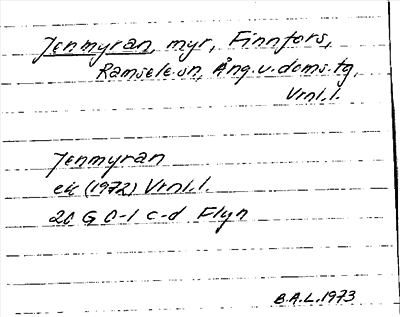 Jenmyran, myr, Finnfors,
Ramsele sn, Ång.v.doms.tg,
Vrnl.l.
Jenmyran
ek (1972) Vrnl.l.
20 G 0-1 c-d Flyn
B.A.L.1973